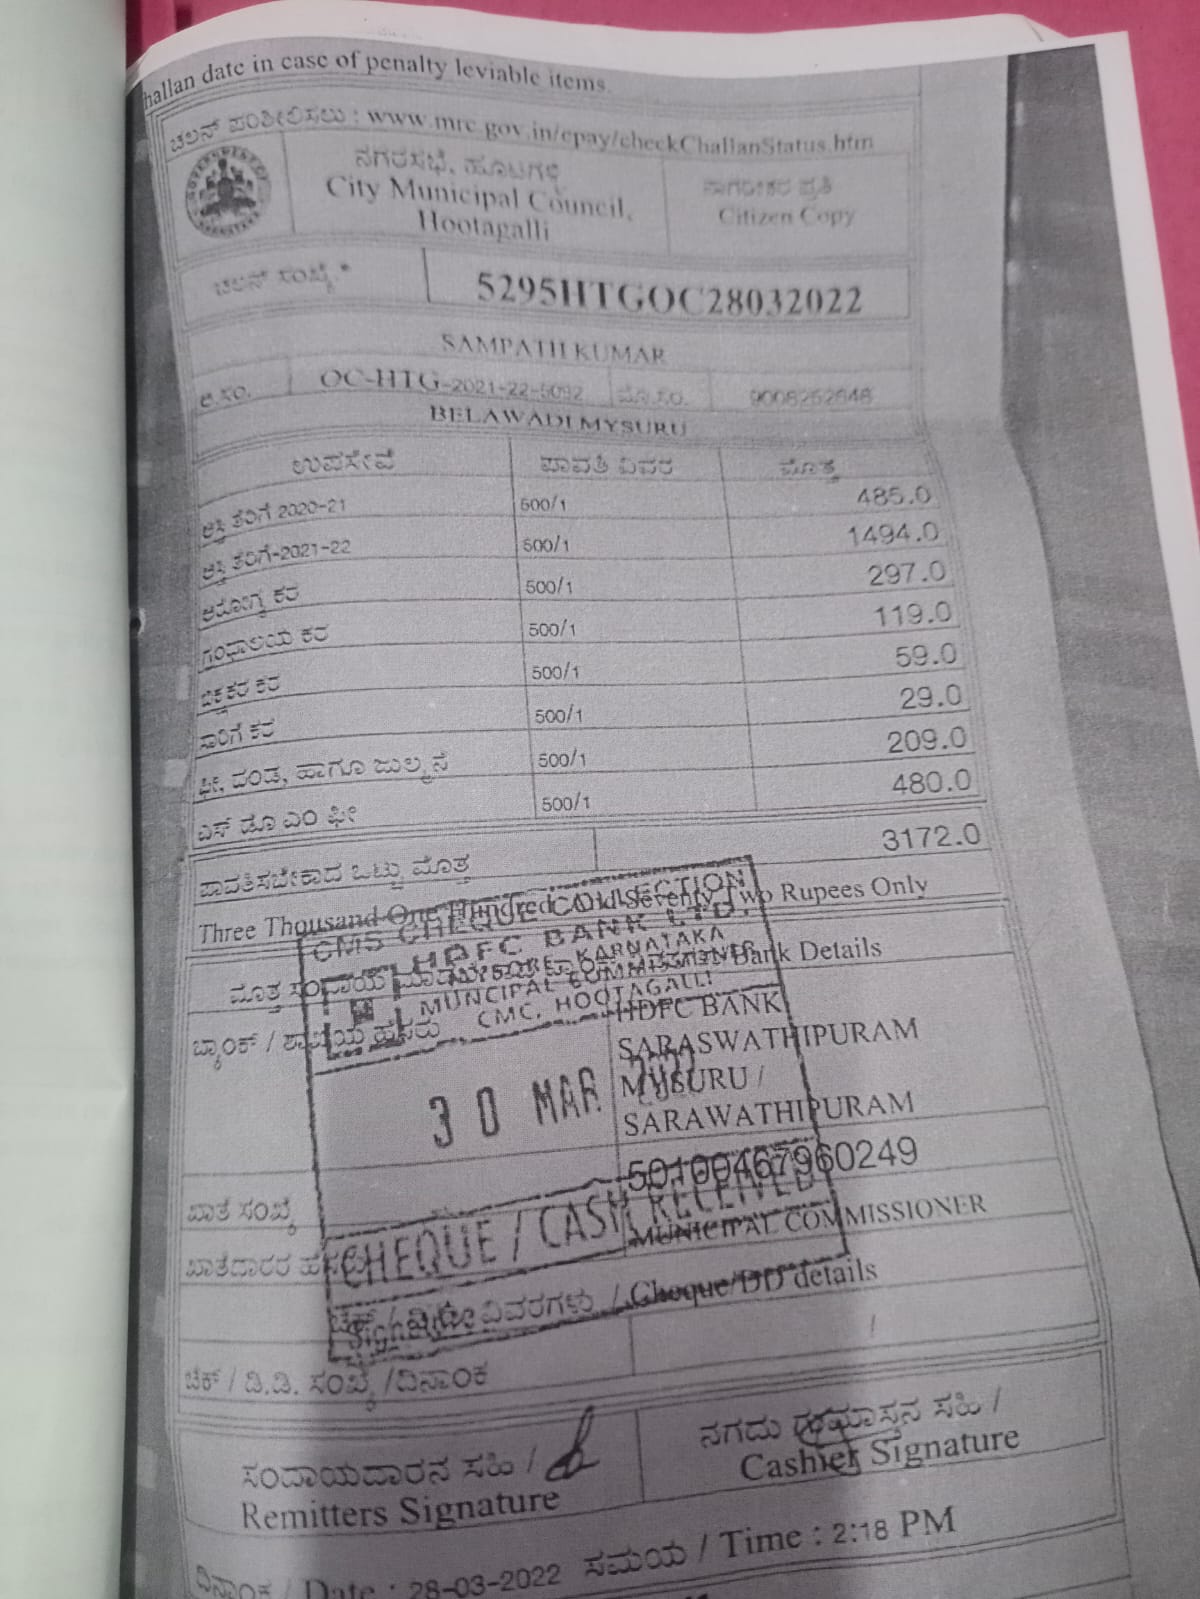 hallan date in case of penalty leviable items.
ಚಲನ್ ಪರಿಶೀಲಿಸಲು : www.mrc.gov.in/epay/checkChallanStatus.htm
ನಗರಸಭೆ, ಹೂಟಗಳ್ಳಿ
City Municipal Council,
Hootagalli
ನಾಗರೀಕರ ಪ್ರತಿ
Citizen Copy
GOVERNMENT OF KARNATAKA
ಚಲನ್ ಸಂಖ್ಯೆ *
5295HTGOC28032022
SAMPATH KUMAR
ಆ.ಸಂ. OC-HTG-2021-22-5092 ಮೊ.ಸಂ. 9008252648
BELAWADI MYSURU
ಉಪಸೇವೆ ಪಾವತಿ ವಿವರ ಮೊತ್ತ
ಆಸ್ತಿ ತೆರಿಗೆ 2020-21 500/1 485.0
ಆಸ್ತಿ ತೆರಿಗೆ-2021-22 500/1 1494.0
ಆರೋಗ್ಯ ಕರ 500/1 297.0
ಗ್ರಂಥಾಲಯ ಕರ 500/1 119.0
ಭಿಕ್ಷುಕರ ಕರ 500/1 59.0
ಸಾರಿಗೆ ಕರ 500/1 29.0
ಫೀ, ದಂಡ, ಹಾಗೂ ಜುಲ್ಮನೆ 500/1 209.0
ಎಸ್ ಡಬ್ಲೂ ಎಂ ಫೀ 500/1 480.0
ಪಾವತಿಸಬೇಕಾದ ಒಟ್ಟು ಮೊತ್ತ 3172.0
Three Thousand One Hundred And Seventy Two Rupees Only
CMS CHEQUE COLLECTION
HDFC BANK LTD.
MYSORE, KARNATAKA
MUNCIPAL COMMISSIONER
CMC, HOOTAGALLI
ಮೊತ್ತ ಸಂದಾಯ Bank Details
ಬ್ಯಾಂಕ್ / ಶಾಖೆಯ ಹೆಸರು
HDFC BANK
SARASWATHIPURAM
MYSURU /
SARAWATHIPURAM
30 MAR 2022
ಖಾತೆ ಸಂಖ್ಯೆ 50100467960249
CHEQUE / CASH RECEIVED
ಖಾತೆದಾರರ ಹೆಸರು MUNICIPAL COMMISSIONER
Signature
ಚೆಕ್ / ಡಿಡಿ ವಿವರಗಳು / Cheque/DD details
ಚೆಕ್ / ಡಿ.ಡಿ. ಸಂಖ್ಯೆ /ದಿನಾಂಕ /
ಸಂದಾಯದಾರನ ಸಹಿ /
Remitters Signature
ನಗದು ಸಹಿ /
Cashier Signature
ದಿನಾಂಕ / Date : 28-03-2022 ಸಮಯ / Time : 2:18 PM